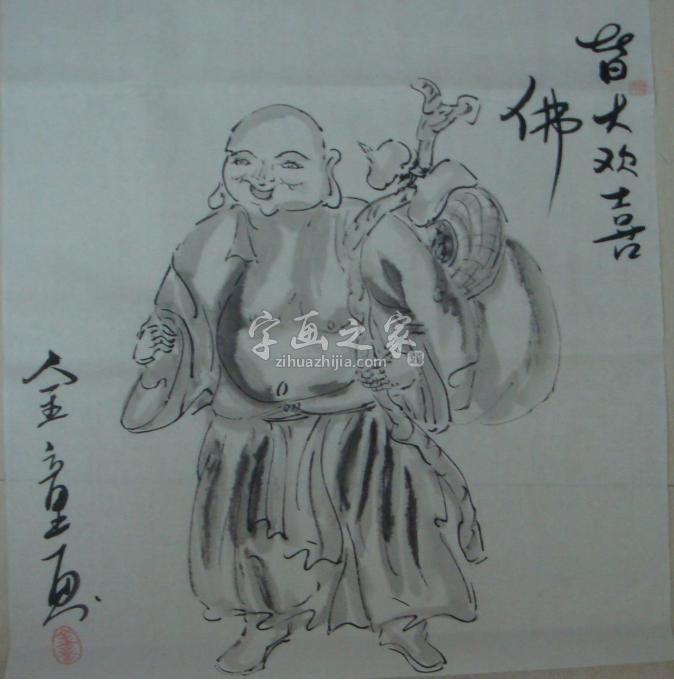 皆大欢喜
佛
全童画
字画之家
zihuazhijia.com